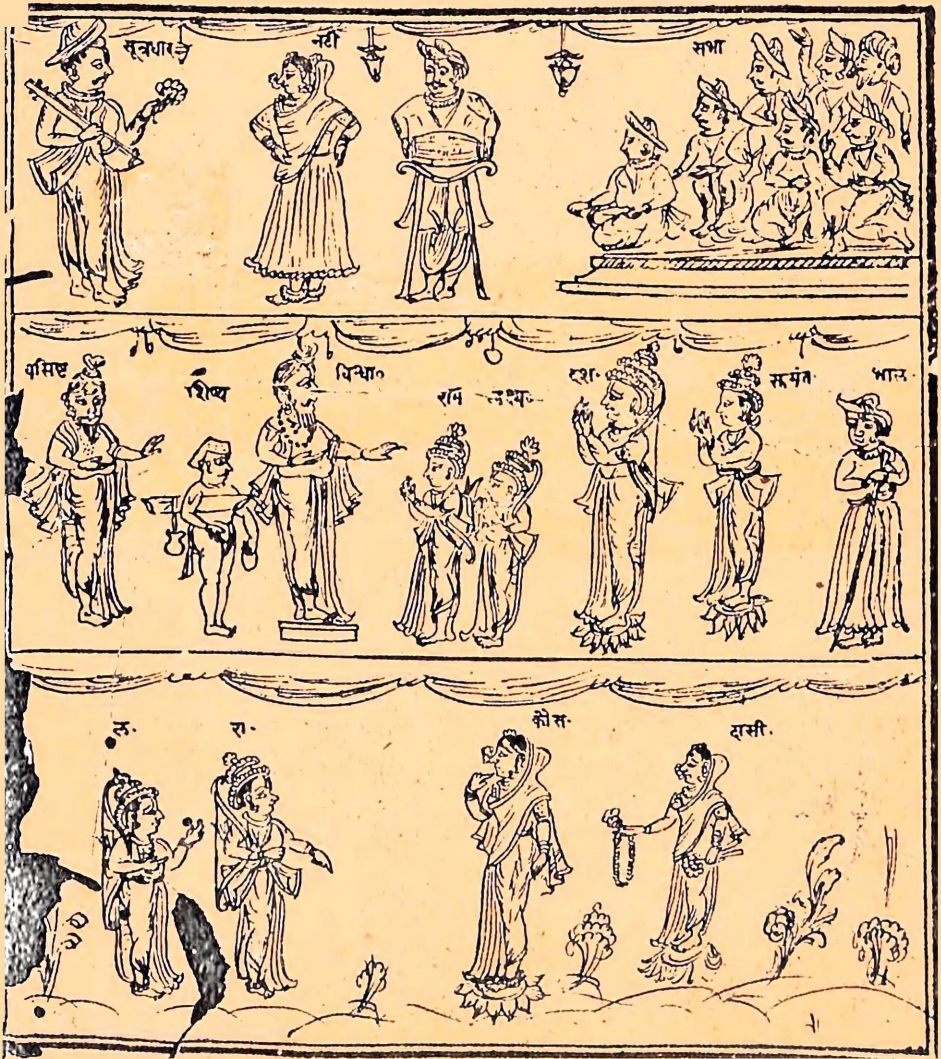 सूत्रधार
नटी
सभा
वसिष्ट
शिष्य
विश्वा०
राम लक्ष्म०
दश॰
सुमंत॰
भाल॰
ल॰
रा॰
कौस॰
दासी॰